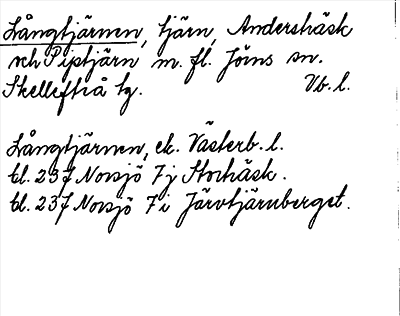 Långtjärnen, tjärn, Andershäsk
och Piptjärn m. fl. Jörns sn.
Skellefteå tg. Vb. l.
Långtjärnen, ek. Västerb. l.
bl. 237 Norsjö 7 j Storhäsk.
bl. 237 Norsjö 7 i Järvtjärnberget.